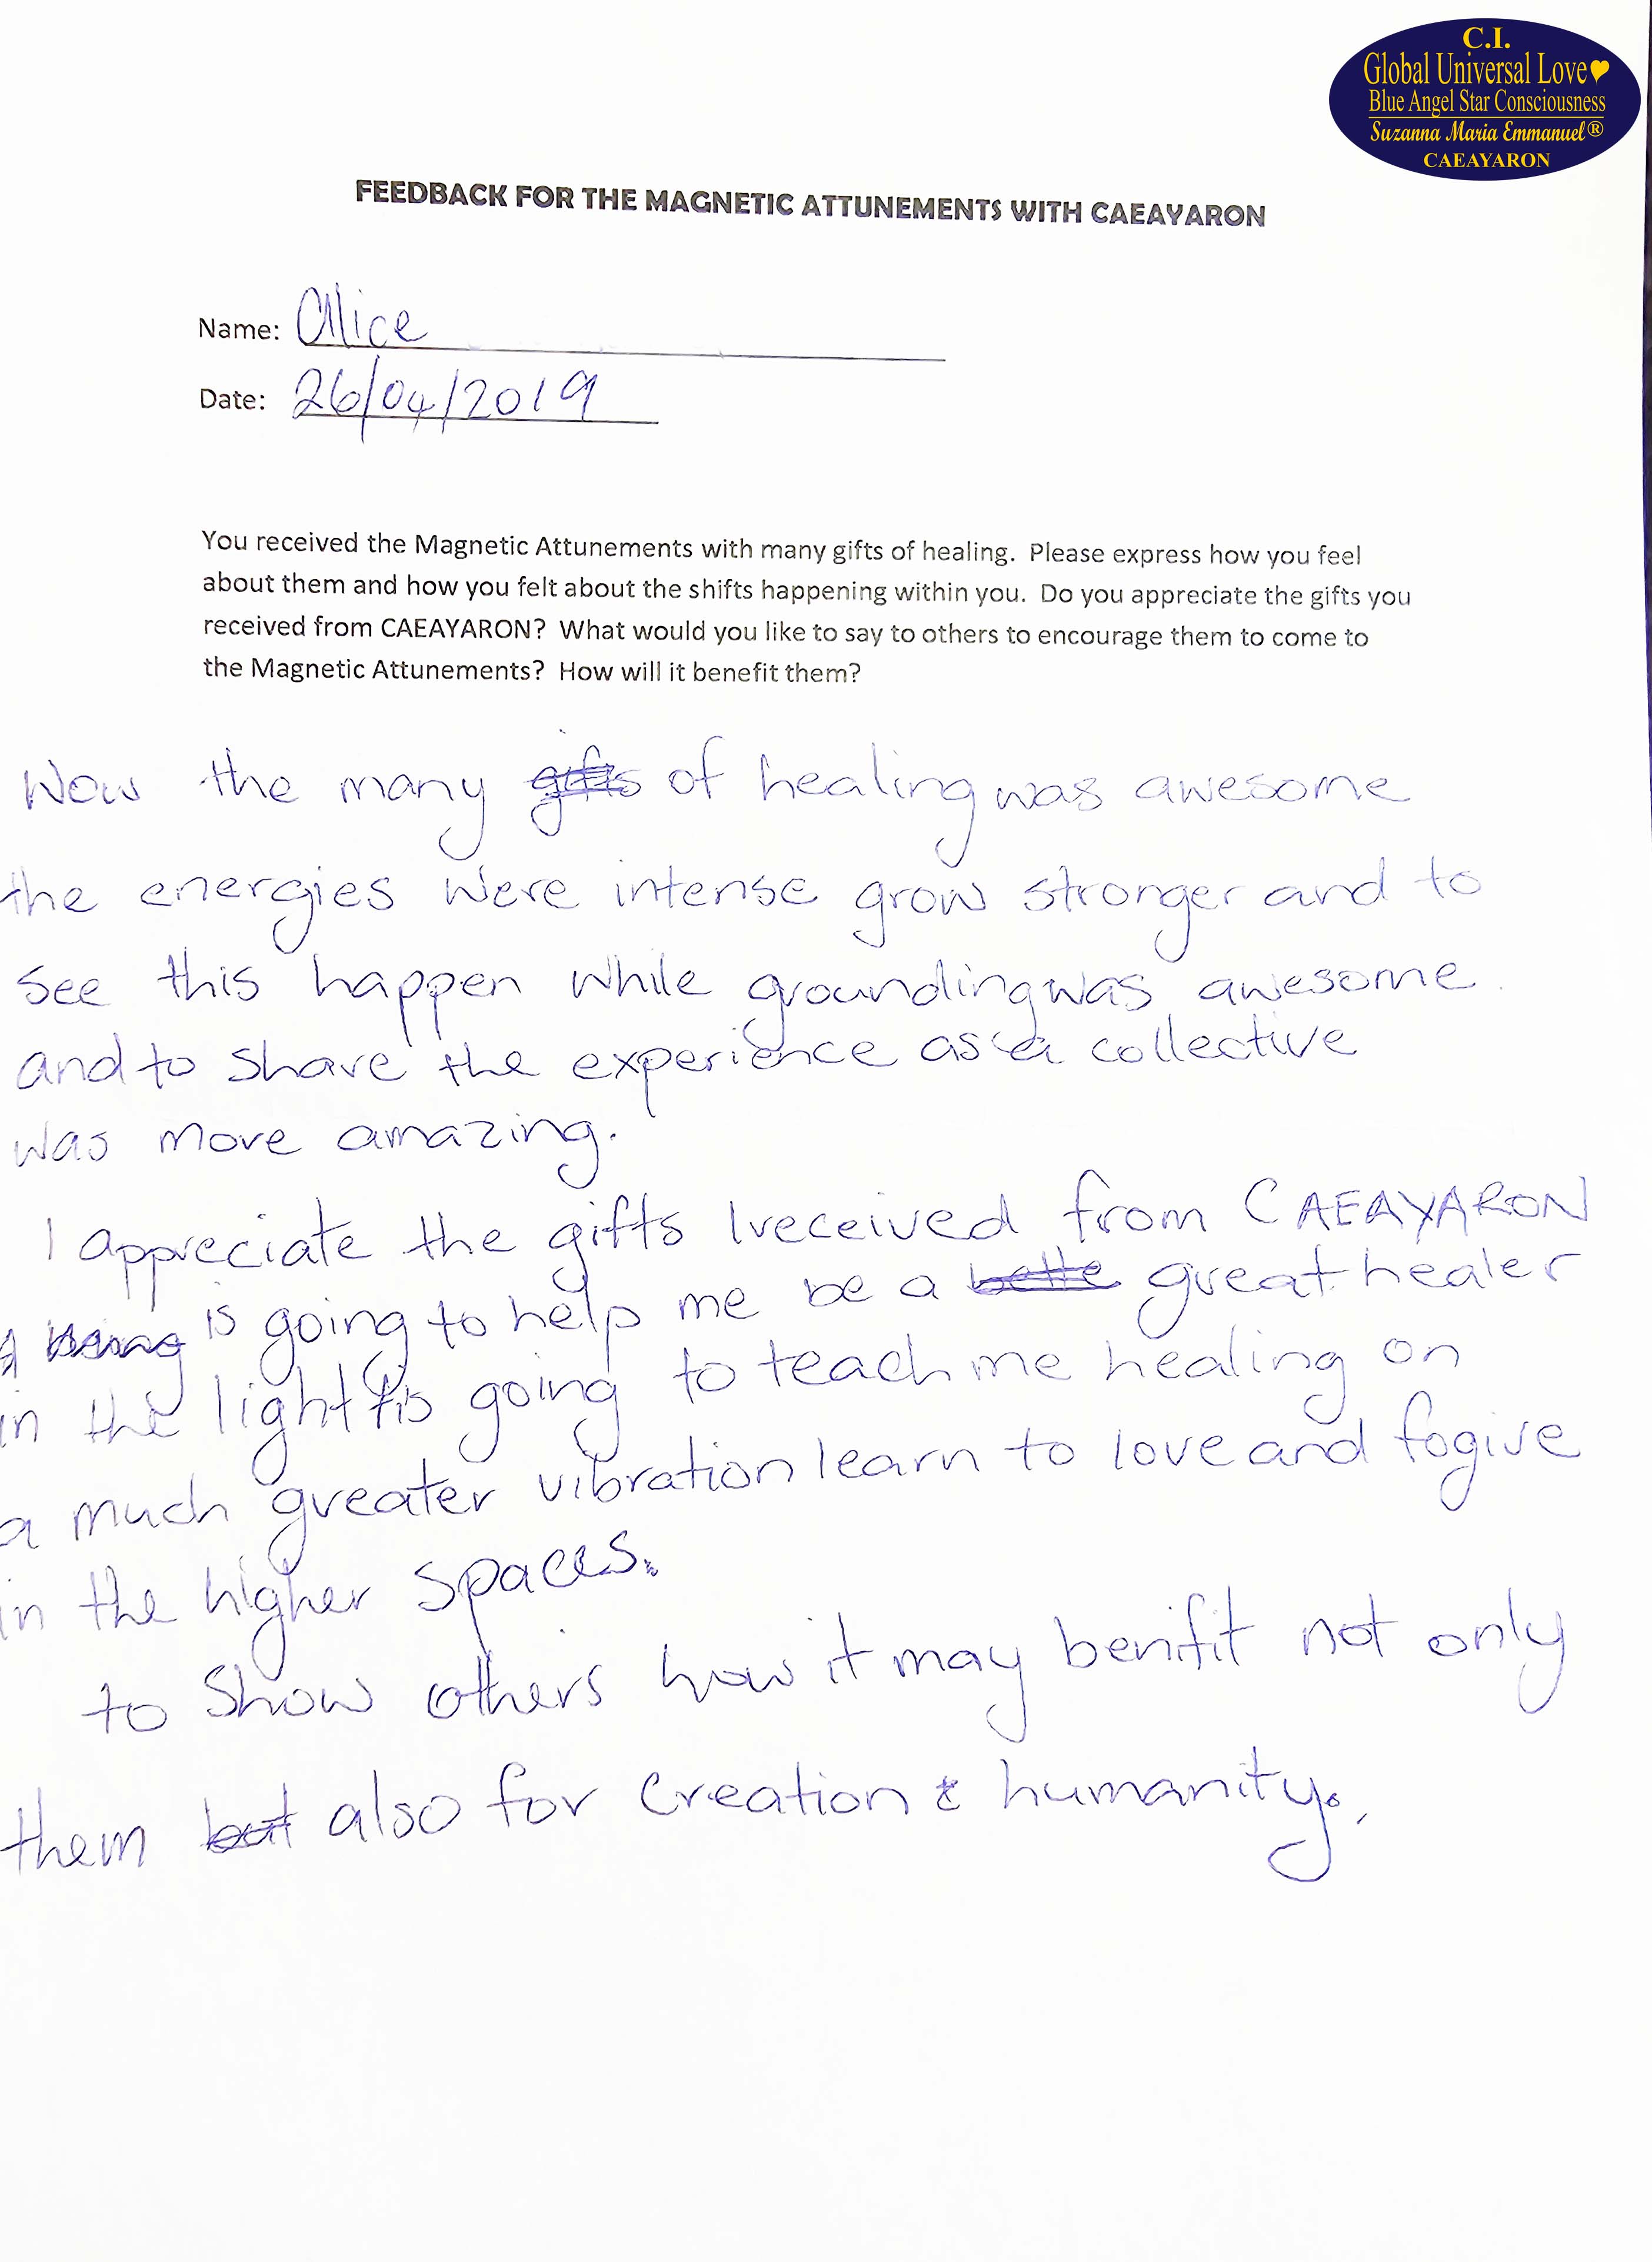 C.I.
Global Universal Love
Blue Angel Star Consciousness
Suzanna Maria Emmanuel®
CAEAYARON
FEEDBACK FOR THE MAGNETIC ATTUNEMENTS WITH CAEAYARON
Name: Alice
Date: 26/04/2019
You received the Magnetic Attunements with many gifts of healing. Please express how you feel
about them and how you felt about the shifts happening within you. Do you appreciate the gifts you
received from CAEAYARON? What would you like to say to others to encourage them to come to
the Magnetic Attunements? How will it benefit them?
Wow the many gifts of healing was awesome
the energies were intense grow stronger and to
see this happen while grounding was awesome.
and to share the experience as a collective
was more amazing.
I appreciate the gifts I received from CAEAYARON
is going to help me be a bette great healer
in the light is going to teach me healing on
a much greater vibration learn to love and fogive
in the higher spaces.
to show others how it may benifit not only
them but also for creation & humanity.